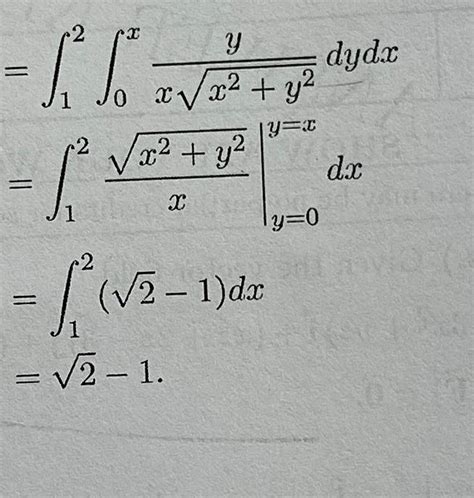 = ∫₁² ∫₀ˣ y / (x√(x² + y²)) dydx
= ∫₁² √(x² + y²) / x |_{y=0}^{y=x} dx
= ∫₁² (√2 − 1)dx
= √2 − 1.